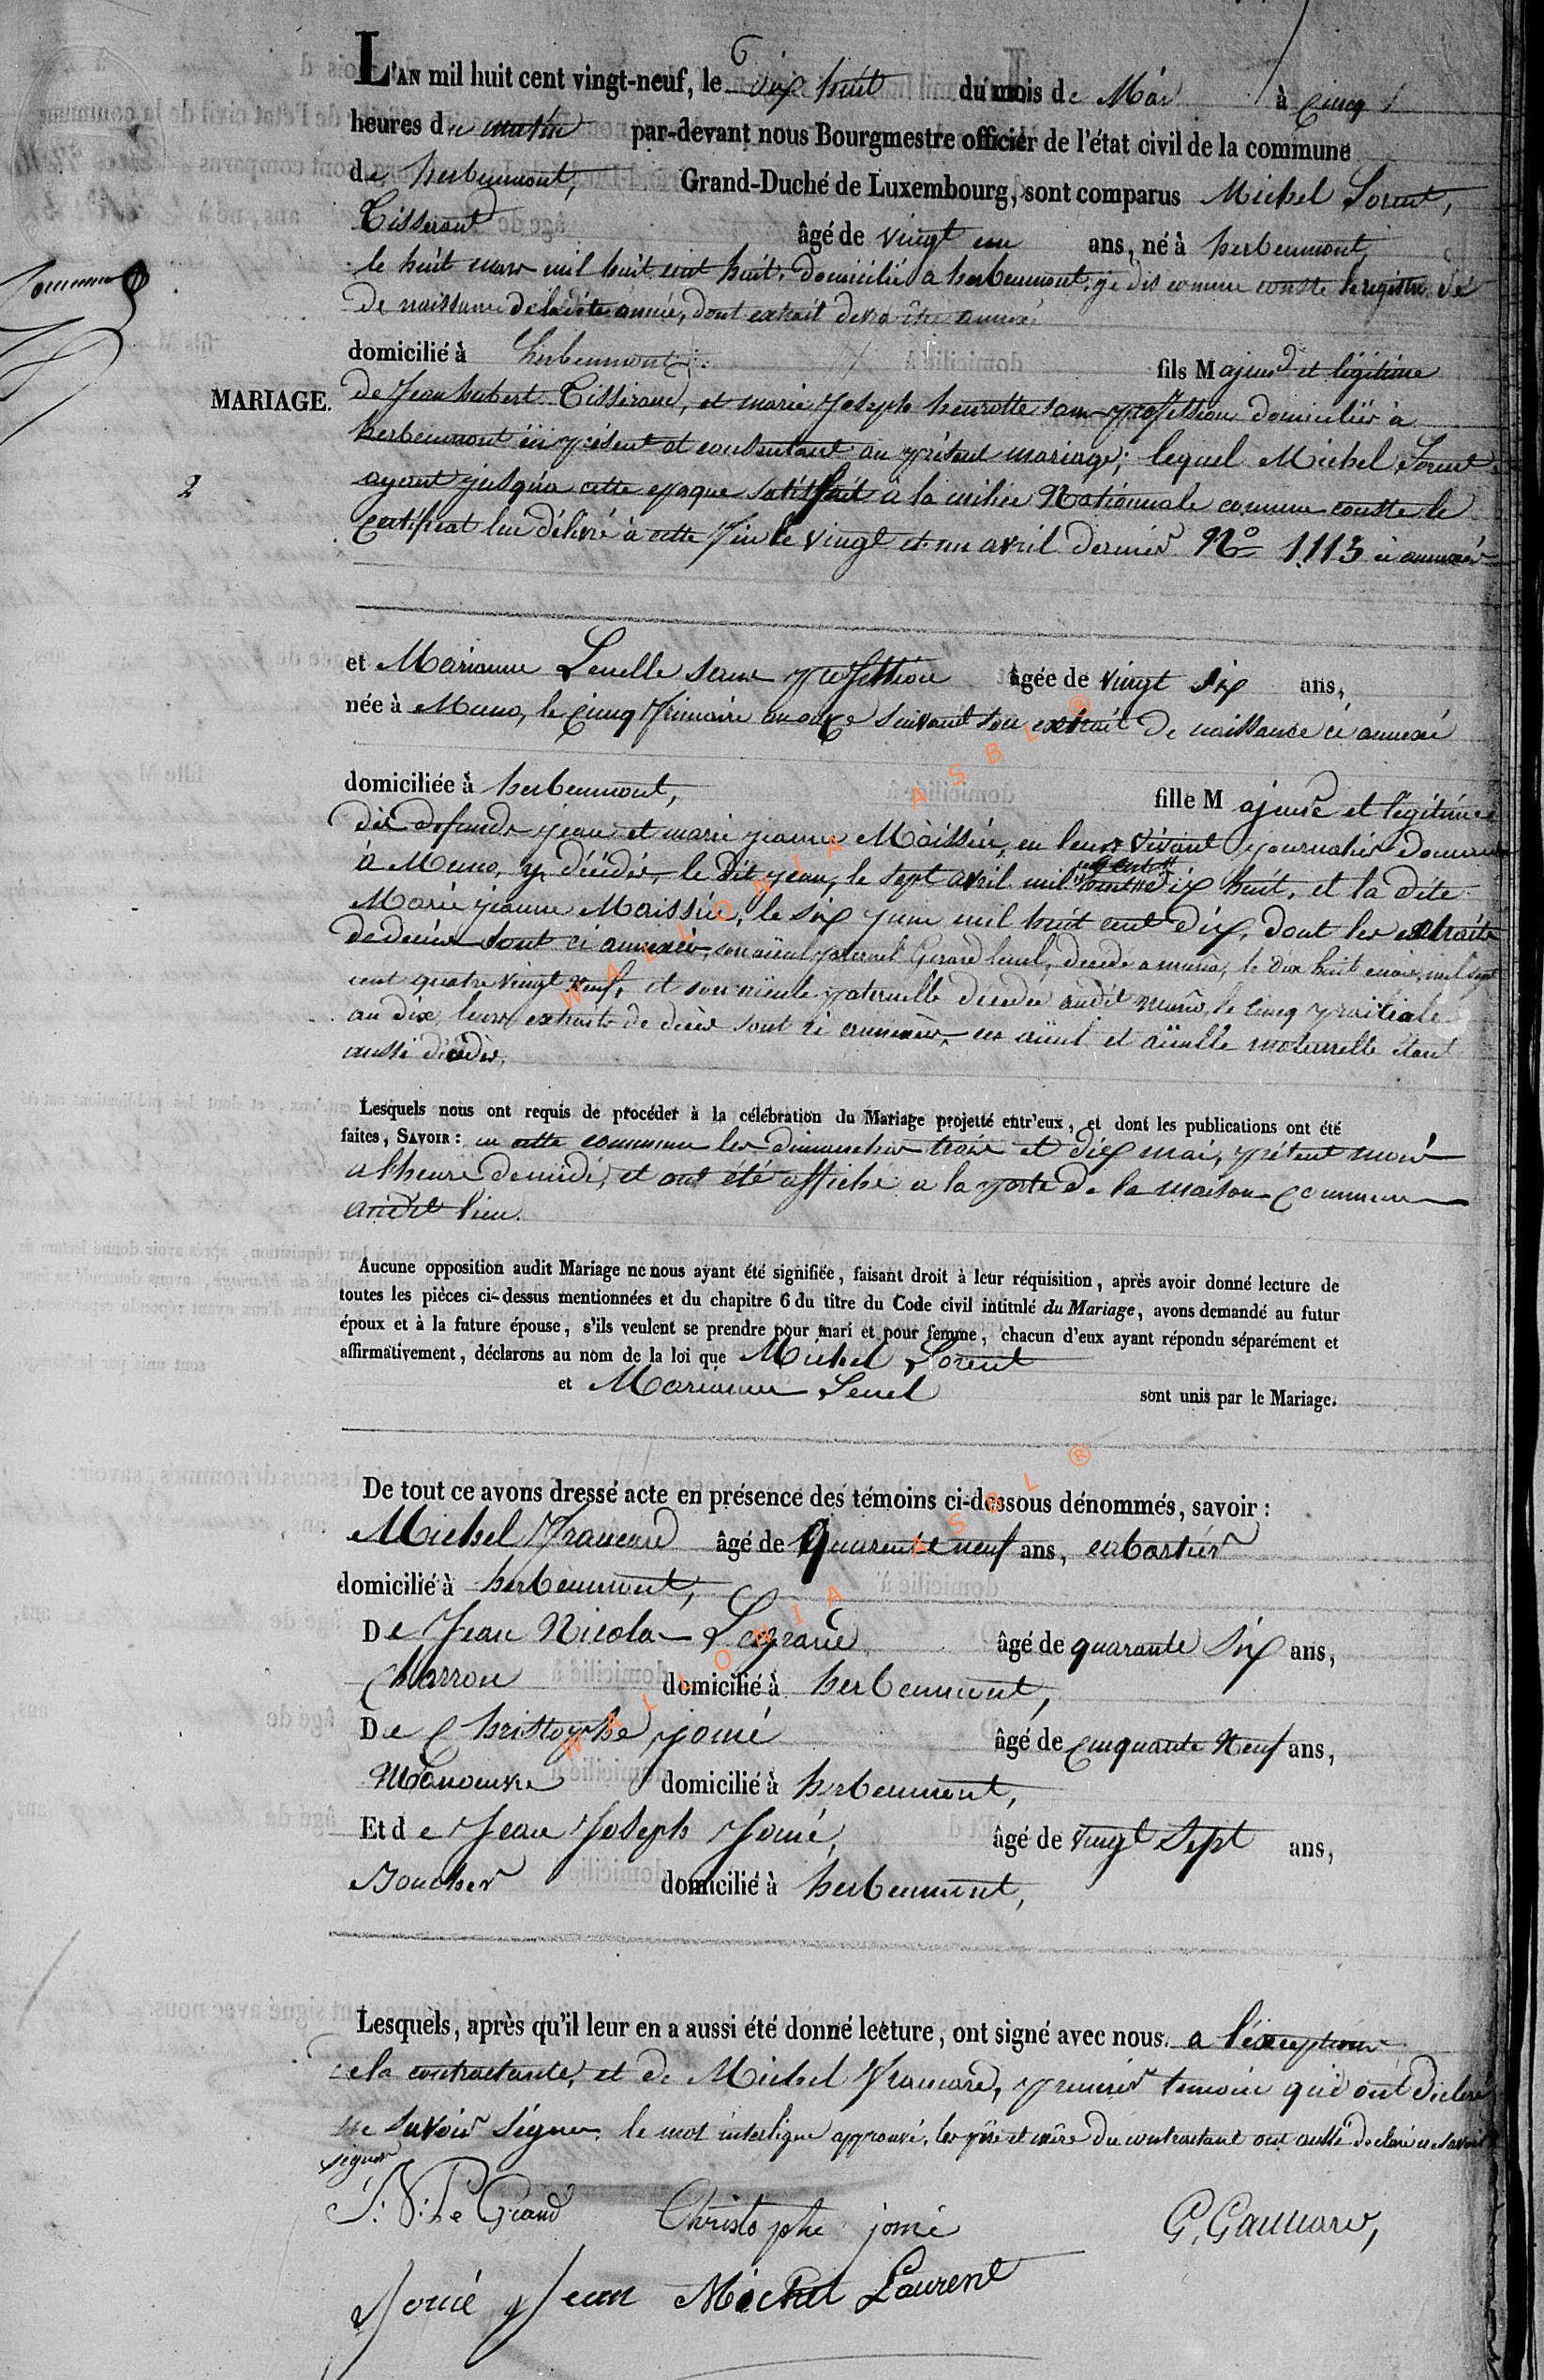 L'AN mil huit cent vingt-neuf, le dix huit du mois de Mai à cinq
heures du matin par-devant nous Bourgmestre officier de l'état civil de la commune
de herbeumont, Grand-Duché de Luxembourg, sont comparus Michel Lorent,
Tisserand âgé de vingt un ans, né à herbeumont
le huit mars mil huit cent huit, domicilié a herbeumont, je dis comme conste le registre de
de naissance de la dite année, dont extrait devra être annexé
domicilié à herbeumont, fils Majeur et légitime
MARIAGE.
de Jean hubert Tisserand, et marie Joseph henrotte sans profession domiciliés à
herbeumont ici présent et consentant au présent mariage; lequel Michel Lorent
2
ayant jusqu'à cette epoque satisfait à la milice Nationnale comme conste le
certificat lui délivré à cette fin le vingt et un avril dernier No 1113 ci annexés
et Marianne Lenelle sans profession âgée de vingt six ans,
née à Muno, le cinq frimaire an onze suivant son extrait de naissance ci annexé
domiciliée à herbeumont, fille Majeure et légitime
des defunds jean et marie jeanne Maissin, en leurs vivant journalier domicilies
à Muno, y décédés, le dit jean, le sept avril mil huit cent dix huit, et la dite
Marie jeanne Maissin, le six juin mil huit cent dix, dont les extraits
de décès sont ci annexés, son aïeul paternel Gerard lenel, decede a muno, le dix huit mil sept
cent quatre vingt neuf, et son aïeule paternelle décédée audit muno, le cinq prairial
an dix, leurs extraits de décès sont ci annexés, ses aïeul et aïeulle maternelle étant
aussi décédés,
Lesquels nous ont requis de procéder à la célébration du Mariage projetté entr'eux, et dont les publications ont été
faites, SAVOIR: en cette commune les dimanches trois et dix mai, présent mois
a l'heure de midi, et ont été affiché a la porte de la maison commune
audit lieu.
Aucune opposition audit Mariage ne nous ayant été signifiée, faisant droit à leur réquisition, après avoir donné lecture de
toutes les pièces ci-dessus mentionnées et du chapitre 6 du titre du Code civil intitulé du Mariage, avons demandé au futur
époux et à la future épouse, s'ils veulent se prendre pour mari et pour femme, chacun d'eux ayant répondu séparément et
affirmativement, déclarons au nom de la loi que Michel Lorent
et Marianne Lenel sont unis par le Mariage.
De tout ce avons dressé acte en présence des témoins ci-dessous dénommés, savoir:
Michel François âgé de quarante neuf ans, cabartier
domicilié à herbeumont,
De Jean Nicola Legrand âgé de quarante six ans,
charron domicilié à herbeumont,
De Christophe jomé âgé de cinquante Neuf ans,
Manoeuvre domicilié à herbeumont,
Et de Jean Joseph Jomé, âgé de vingt sept ans,
Boucher domicilié à herbeumont,
Lesquels, après qu'il leur en a aussi été donné lecture, ont signé avec nous. a l'éxception
de la contractante, et de Michel premier temoin qui ont déclaré
ne savoir signer. le mot interligne approuvé, les père et mère du contractant ont aussi déclaré ne savoir
signer
J. N. Le Grand Christophe jomé
Jomé Jean Michel Laurent
WALLONIA ASBL ®
WALLONIA ASBL ®